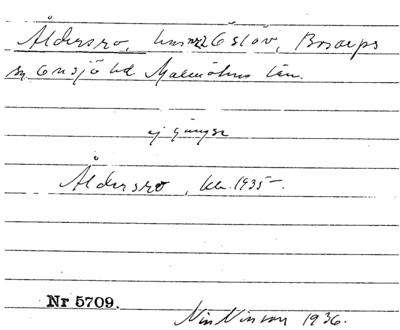 Åldersro, Eslöv, Bosarps
sn Onsjö hd Malmöhus län.
ej gängse
Åldersro, 1935-.
Nr 5709.
1936.